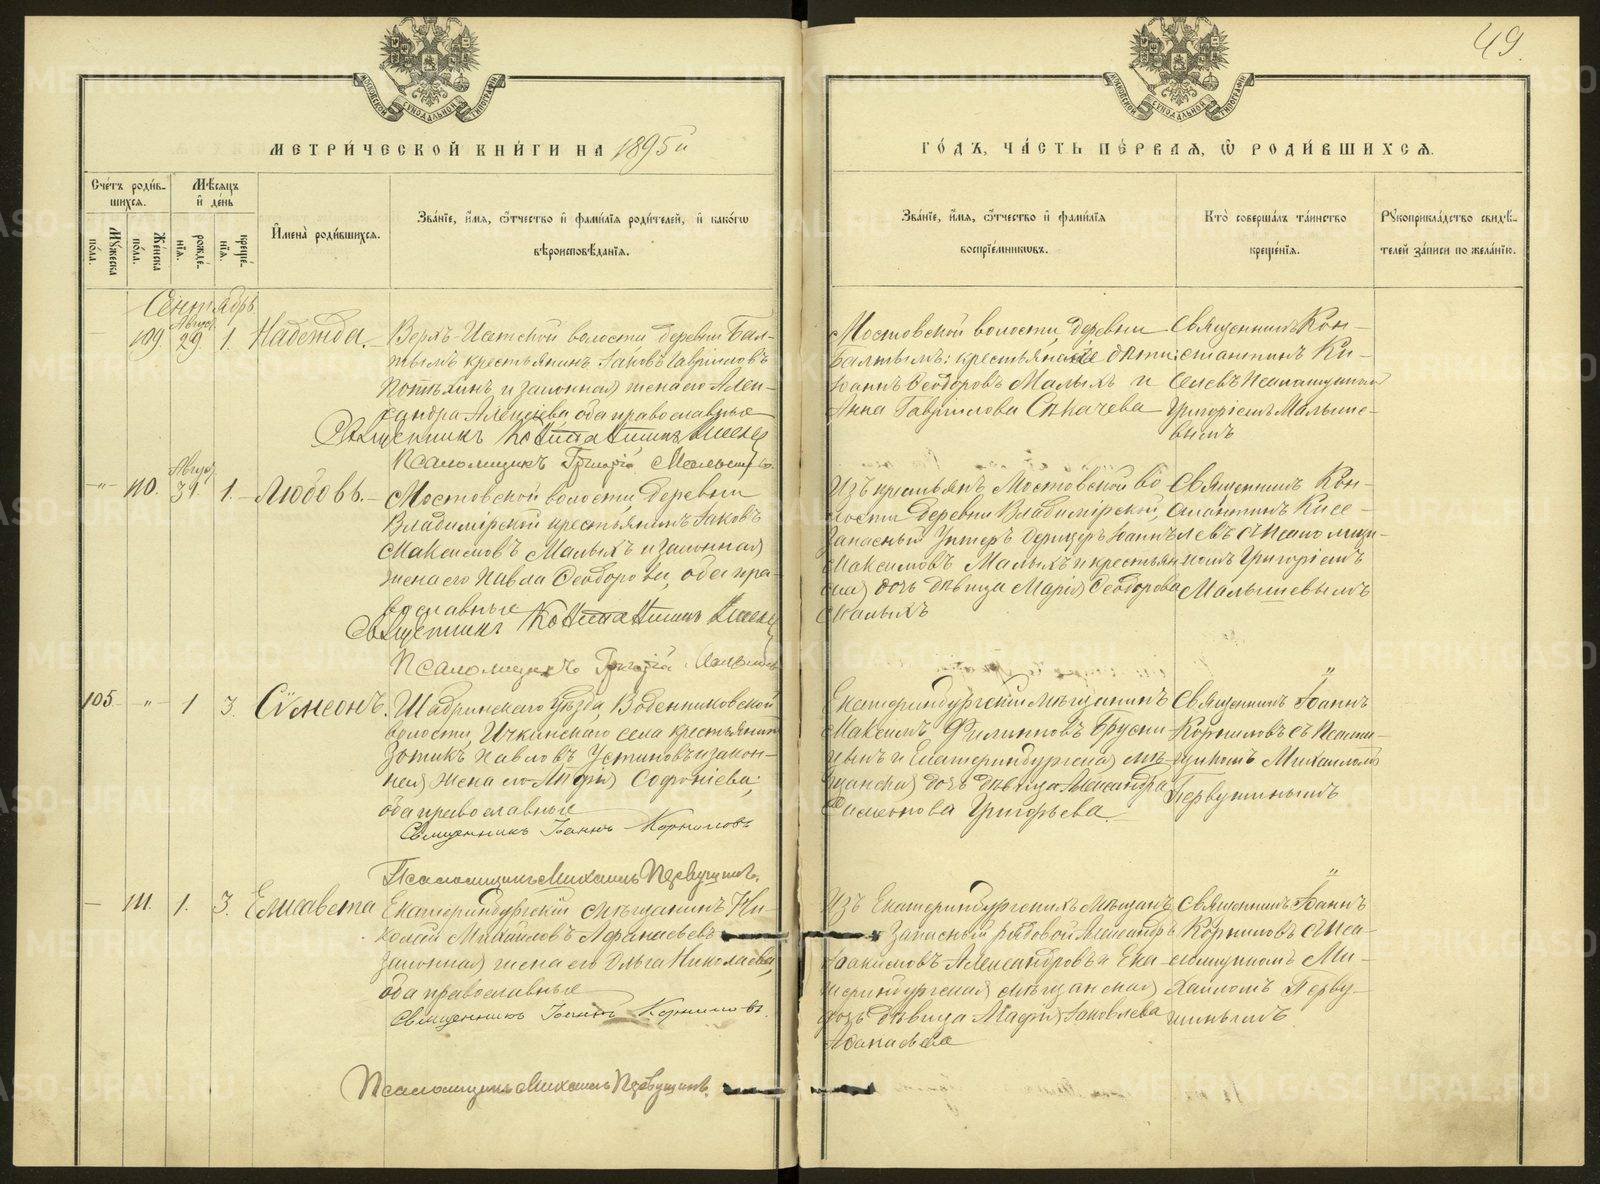 49.
МОСКОВСКОЙ СѴНОДАЛЬНОЙ ТИПОГРАФІИ
МОСКОВСКОЙ СѴНОДАЛЬНОЙ ТИПОГРАФІИ
МЕТРИ́ЧЕСКОЙ КНИ́ГИ НА 1895й
ГО́ДЪ, ЧА́СТЬ ПЕ́РВАЯ, Ѡ РОДИ́ВШИХСЯ.
Сче́тъ роди́в-
шихся.
Мѣсяцъ
и день
Му́жеска
по́ла.
Же́нска
по́ла.
рожде́-
нія.
креще́-
нія.
Имена̀ роди́вшихся.
Зва́ніе, и́мя, ѻ́тчество и фами́лія роди́телей, и како́гѡ
вѣроисповѣ́данія.
Зва́ніе, и́мя, ѻ́тчество и фами́лія
воспріе́мникωвъ.
Кто̀ соверша́лъ та́инство
креще́нія.
Рꙋкоприкла́дство свидѣ́-
телей за́писи по жела́нію.
Сентябрь
109 Август. 29 1. Надежда.
Верхъ-Исетской волости деревни Бал-
тымъ крестьянинъ Іаковъ Гавріиловъ
и законная жена его Алек-
сандра Алексѣева, оба православные
Священникъ Константинъ Киселевъ
Псаломщикъ Григорій Малышевъ
Мостовской волости, деревни
Балтымъ: крестьянскіе дѣти:
Іоаннъ Ѳеодоровъ Малыхъ и
Анна Гавріилова Сѣкачева
Священникъ Кон-
стантинъ Ки-
селевъ и псаломщикомъ
Григоріемъ Малыше-
вымъ
-"- 110. Август. 31. 1. Любовь.
Мостовской волости, деревни
Владимірской крестьянинъ Іаковъ
Максимовъ Малыхъ и законная
жена его Павла Ѳеодорова, оба пра-
вославные
Священникъ Константинъ Киселевъ
Псаломщикъ Григорій Малышевъ
Изъ крестьянъ Мостовской во
лости деревни Владимірской,
Запасный Унтеръ Офицеръ Іоаннъ
Максимовъ Малыхъ и крестьян
ская дочь дѣвица Марія Ѳеодорова
Малыхъ
Священникъ Кон-
стантинъ Кисе-
левъ съ псаломщи-
комъ Григоріемъ
Малышевымъ
105. -"- 1 3. Сѵмеонъ.
Шадринскаго Уѣзда, Воденниковской
волости, Ичкинскаго села крестьянинъ
Зотикъ Павловъ Устиновъ и закон-
ная жена его Софоніева;
оба православные
Священникъ Іоаннъ Корниловъ
Псаломщикъ Михаилъ Первушинъ.
Екатеринбургскій мѣщанинъ
Максимъ Филипповъ Брусни
цынъ и Екатеринбургская мѣ-
щанская дочь дѣвица Александра
Симеонова Григорьева.
Священникъ Іоаннъ
Корниловъ съ псаломщ-
щикомъ Михаиломъ
Первушинымъ
— 111. 1. 3. Елисавета
Екатеринбургскій мѣщанинъ Ни-
колай Михайловъ Аѳанасьевъ и
законная жена его Ольга Николаева,
оба православные
Священникъ Іоаннъ Корниловъ.
Псаломщикъ Михаилъ Первушинъ.
Изъ Екатеринбургскихъ мѣщанъ
Запасный рядовой Александръ
Іоакимовъ Александровъ и Ека-
теринбургская мѣщанская
дочь дѣвица Іаковлева
Аѳанасьева
Священникъ Іоаннъ
Корниловъ съ пса-
ломщикомъ Ми-
хаиломъ Перву-
шинымъ
METRIKI.GASO-URAL.RU